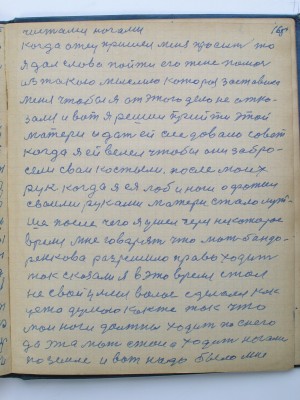 чистыми ногами 165
Когда отец пришел меня просит то
я дал слово пойти его жене помог
из такою мыслью которая заставила
меня чтобы я от этого дело не отка-
зали и вот я решил прийти этой
матери и дат ей следовало совет
когда я ей велел чтобы они забро-
сели свои костыли. после моих
рук когда я ся лоб и ноги
своими руками матери стало луч-
ше после чего я ушел через некоторое
время мне говорят что мат банда-
ренкова разрешило право ходит
так сказали я в это время стоял
не свой ум волос сделали как
думало как то так что
мои ноги должны ходит по снегу
да эта мат стала ходит ногами
по земле и вот надо было мне